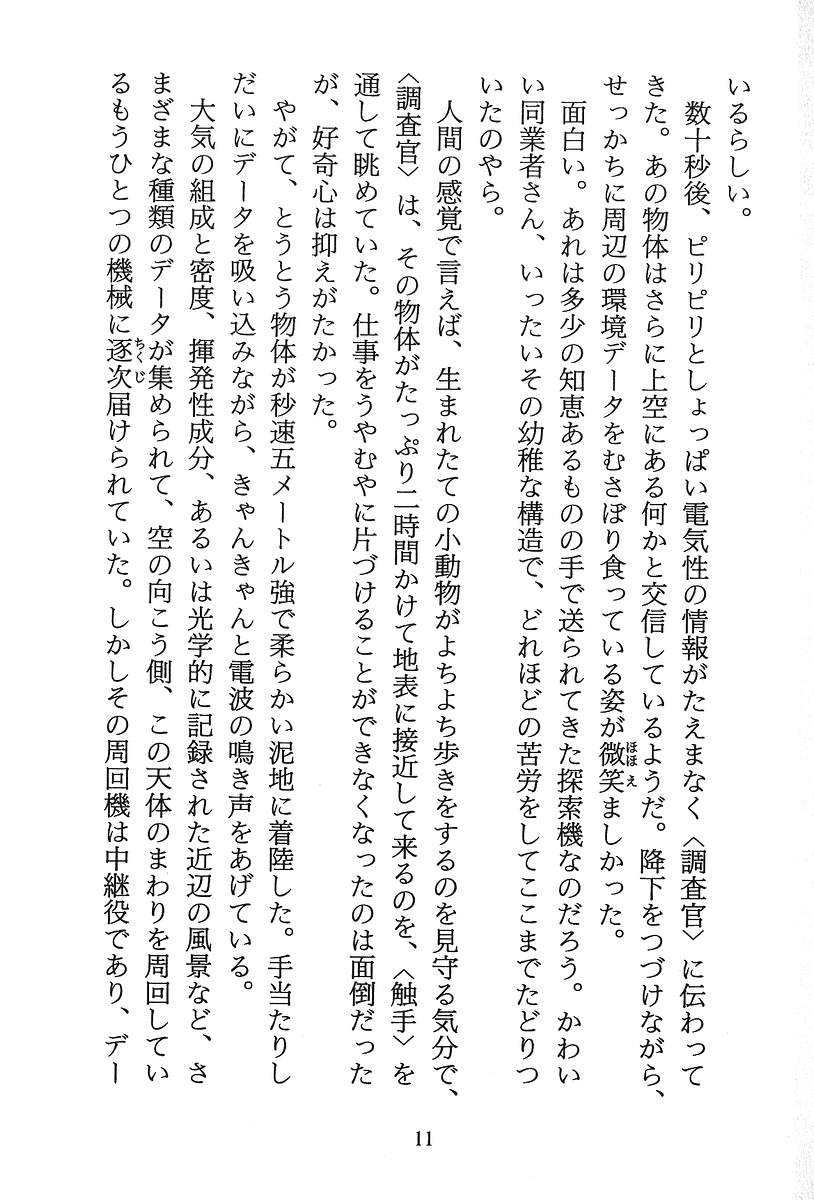 いるらしい。
数十秒後、ピリピリとしょっぱい電気性の情報がたえまなく〈調査官〉に伝わって
きた。あの物体はさらに上空にある何かと交信しているようだ。降下をつづけながら、
せっかちに周辺の環境データをむさぼり食っている姿が微笑ましかった。
ほほえ
面白い。あれは多少の知恵あるものの手で送られてきた探索機なのだろう。かわい
い同業者さん、いったいその幼稚な構造で、どれほどの苦労をしてここまでたどりつ
いたのやら。
人間の感覚で言えば、生まれたての小動物がよちよち歩きをするのを見守る気分で、
〈調査官〉は、その物体がたっぷり二時間かけて地表に接近して来るのを、〈触手〉を
通して眺めていた。仕事をうやむやに片づけることができなくなったのは面倒だった
が、好奇心は抑えがたかった。
やがて、とうとう物体が秒速五メートル強で柔らかい泥地に着陸した。手当たりし
だいにデータを吸い込みながら、きゃんきゃんと電波の鳴き声をあげている。
大気の組成と密度、揮発性成分、あるいは光学的に記録された近辺の風景など、さ
まざまな種類のデータが集められて、空の向こう側、この天体のまわりを周回してい
るもうひとつの機械に逐次届けられていた。しかしその周回機は中継役であり、デー
ちくじ
11